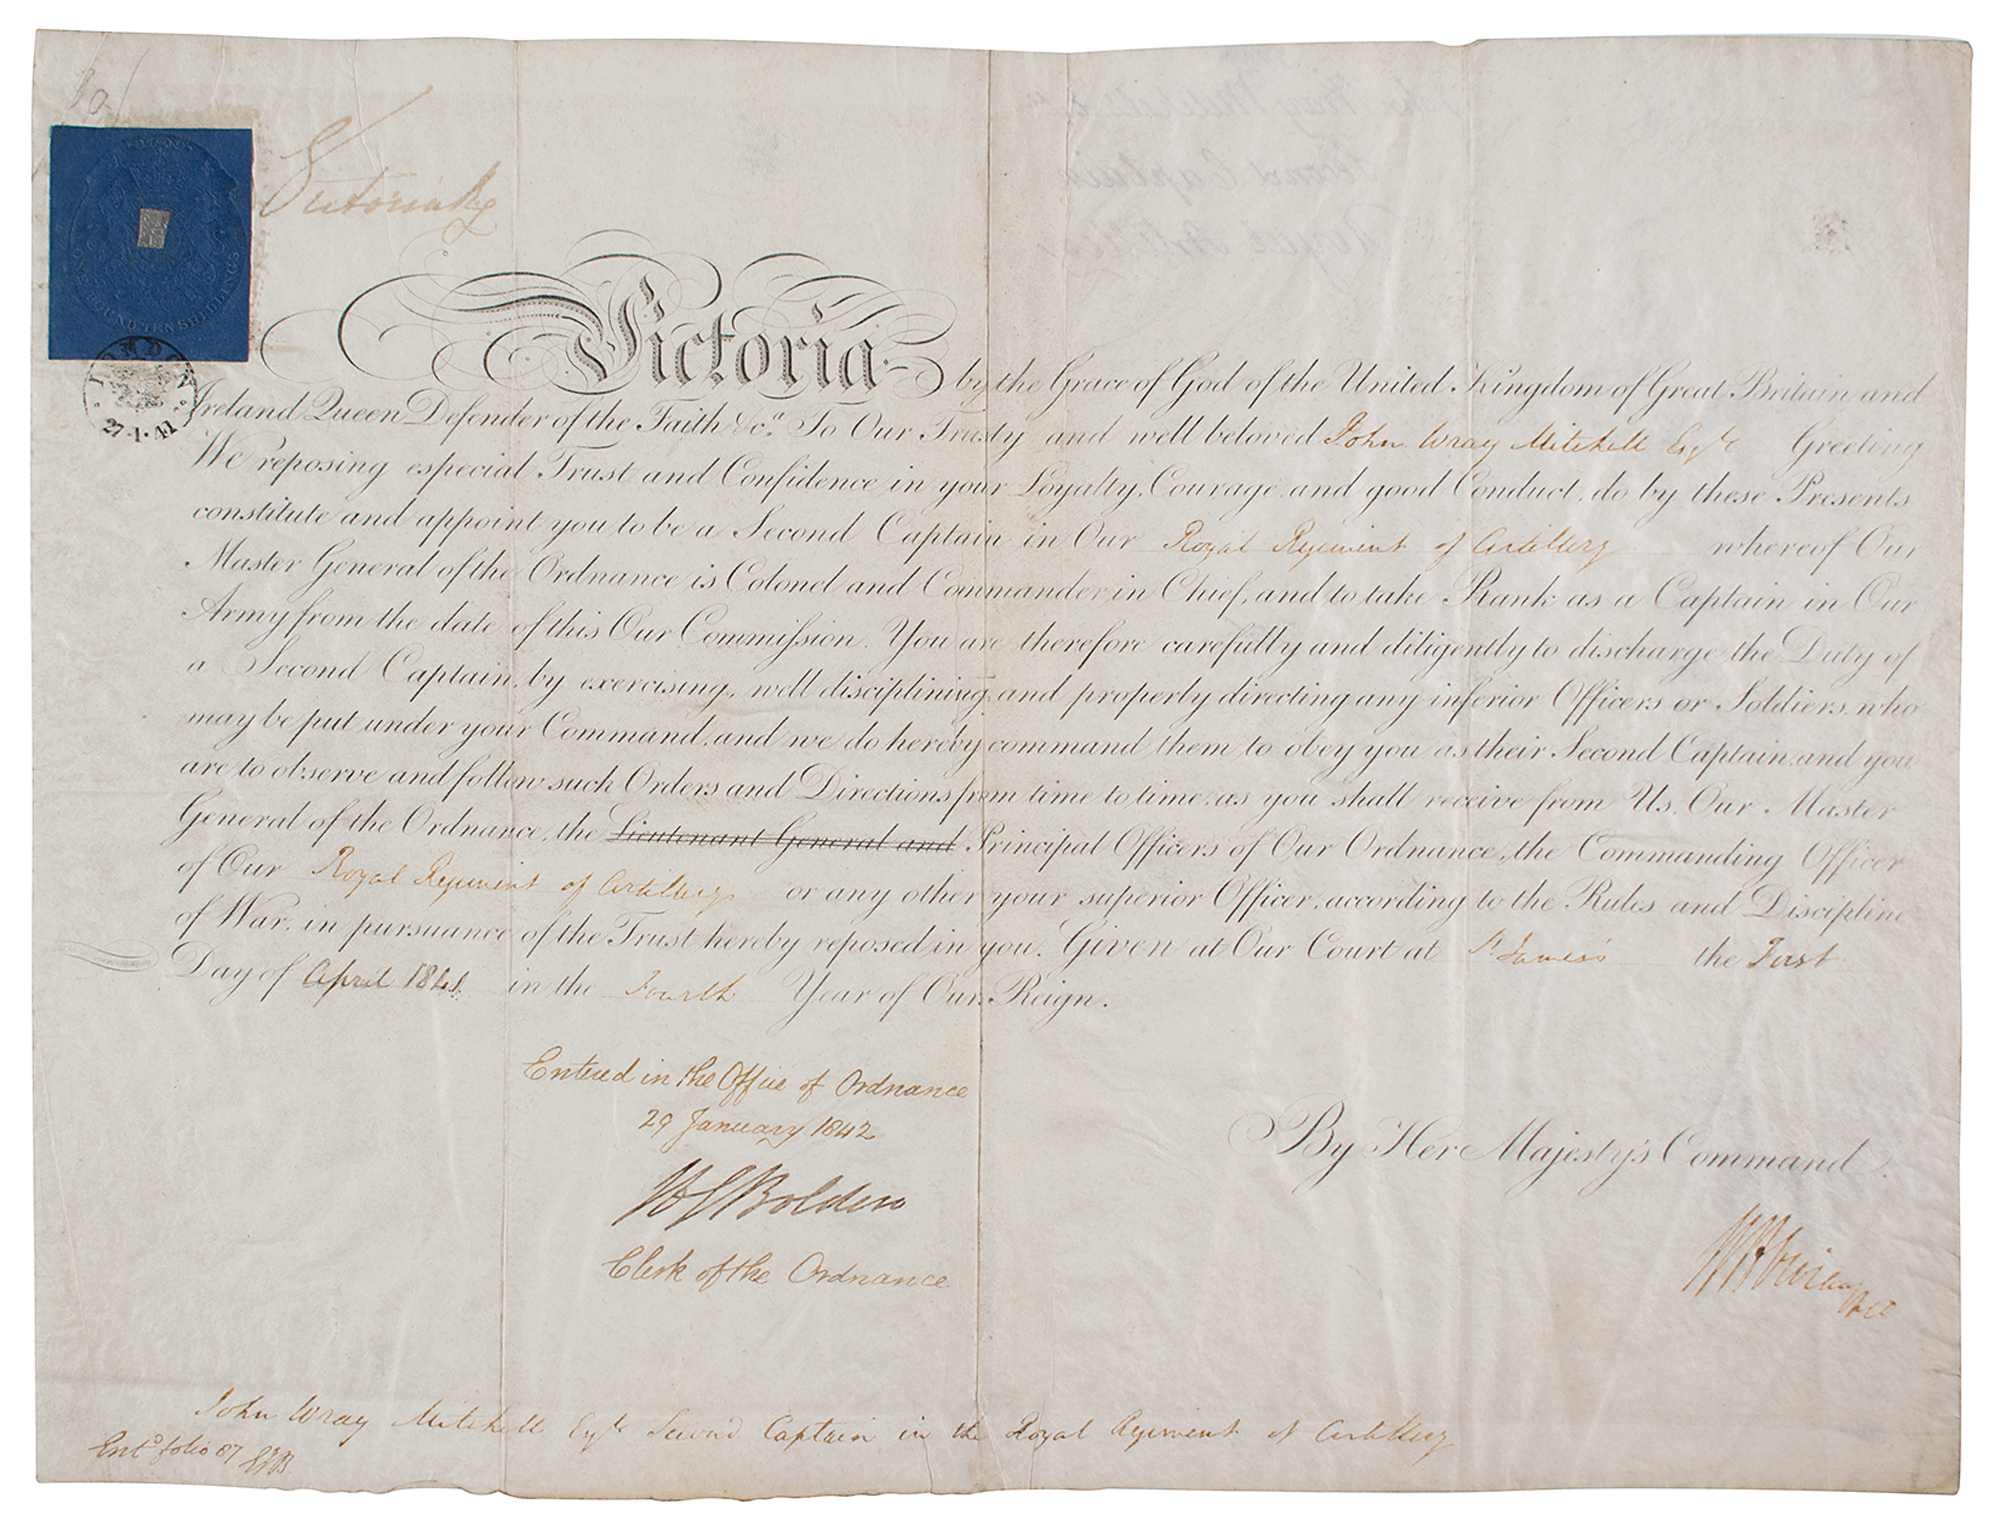 Victoria R
LONDON
27.1.41
ONE POUND TEN SHILLINGS
Victoria by the Grace of God of the United Kingdom of Great Britain and
Ireland Queen Defender of the Faith &c.a To Our Trusty and well beloved John Wray Mitchell Esqre Greeting
We reposing especial Trust and Confidence in your Loyalty, Courage, and good Conduct, do by these Presents
constitute and appoint you to be a Second Captain in Our Royal Regiment of Artillery whereof Our
Master General of the Ordnance is Colonel and Commander in Chief, and to take Rank as a Captain in Our
Army from the date of this Our Commiſsion. You are therefore carefully and diligently to discharge the Duty of
a Second Captain, by exercising, well disciplining, and properly directing any inferior Officers or Soldiers, who
may be put under your Command, and we do hereby command them to obey you as their Second Captain, and you
are to observe and follow such Orders and Directions from time to time, as you shall receive from Us, Our Master
General of the Ordnance, the Lieutenant General and Principal Officers of Our Ordnance, the Commanding Officer
of Our Royal Regiment of Artillery or any other your superior Officer, according to the Rules and Discipline
of War, in pursuance of the Trust hereby reposed in you. Given at Our Court at St James's the First
Day of April 1841 in the Fourth Year of Our Reign.
Entered in the Office of Ordnance
29 January 1842
Clerk of the Ordnance
By Her Majesty's Command.
John Wray Mitchell Esqre Second Captain in the Royal Regiment of Artillery
Entd folio 87